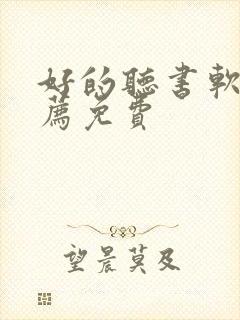 好的聽書軟
薦免費
望晨莫及